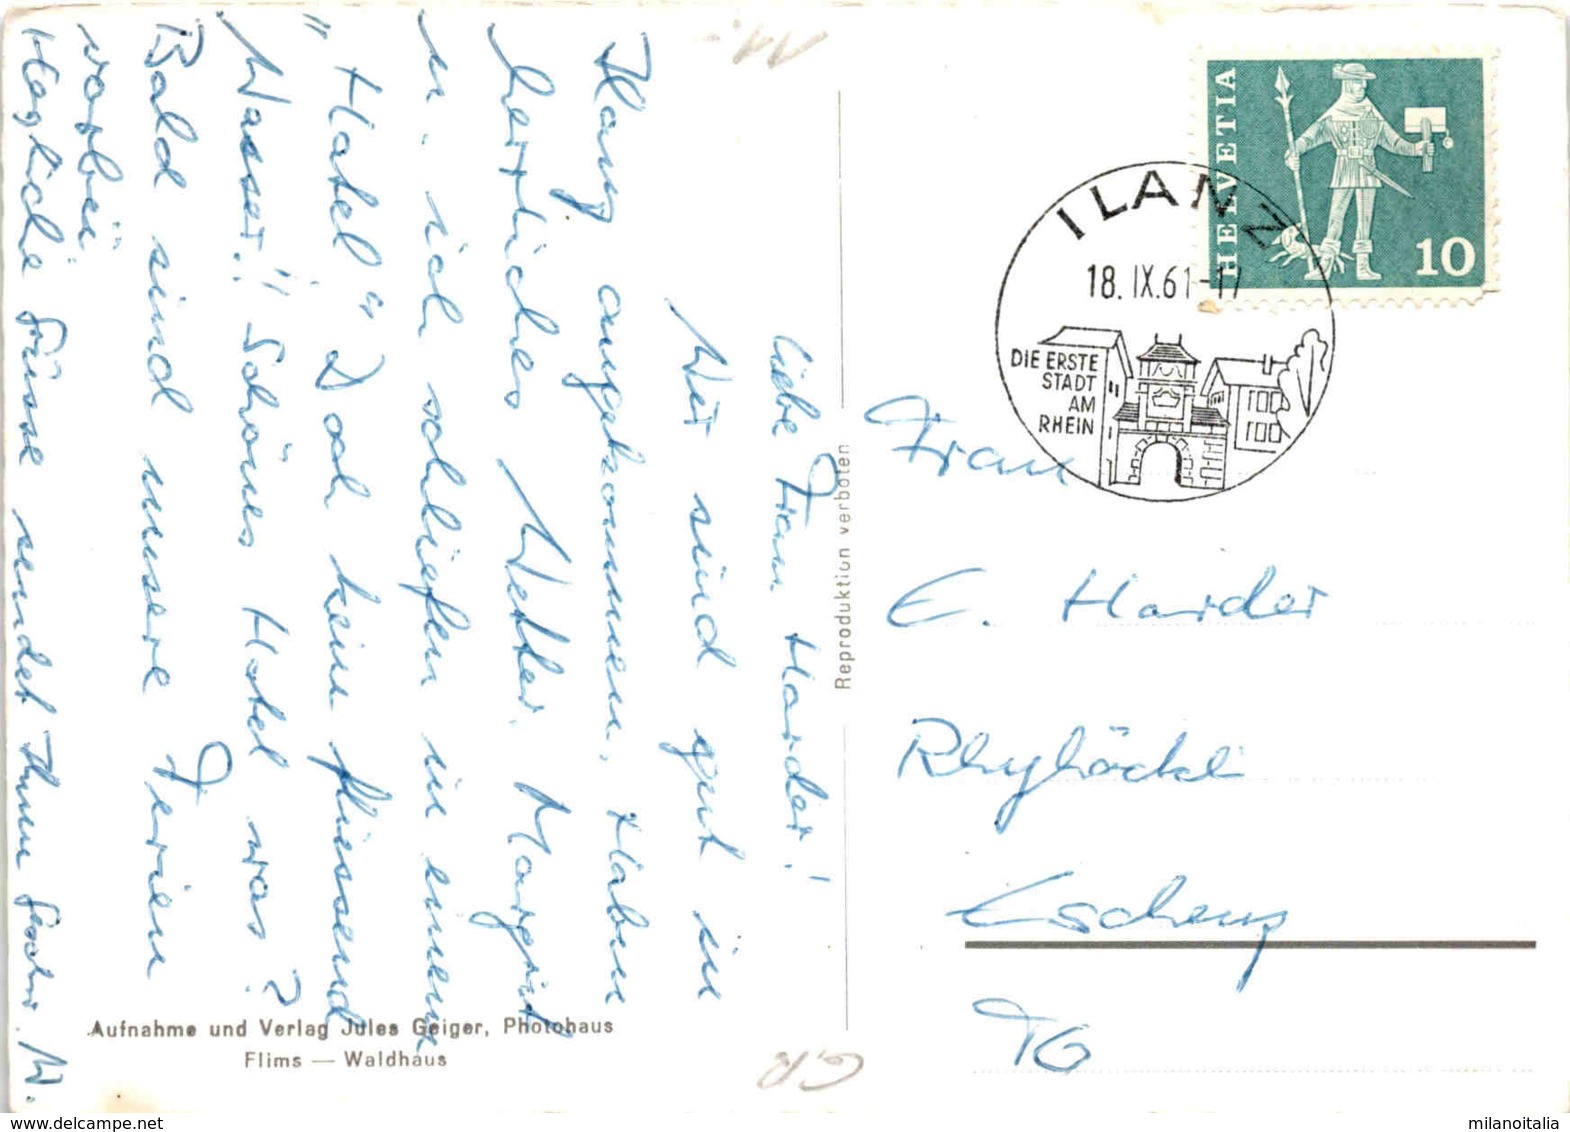 Liebe Frau Harder!
Wir sind gut in
Ilanz angekommen. Haben
herrliches Wetter. Margrit
u. ich schliefen in einem
"Hotel" Doch kein fliessend
Wasser!" Schönes Hotel was?
Bald sind unsere Ferien
vorbei.
Herzliche Grüsse sendet Ihnen
W.
Aufnahme und Verlag Jules Geiger, Photohaus
Flims — Waldhaus
Reproduktion verboten
11.-
GR
HELVETIA
10
ILANZ
18. IX. 61-17
DIE ERSTE
STADT
AM
RHEIN
Frau
E. Harder
Rhyhöckli
Eschenz
TG
milanoitalia
www.delcampe.net